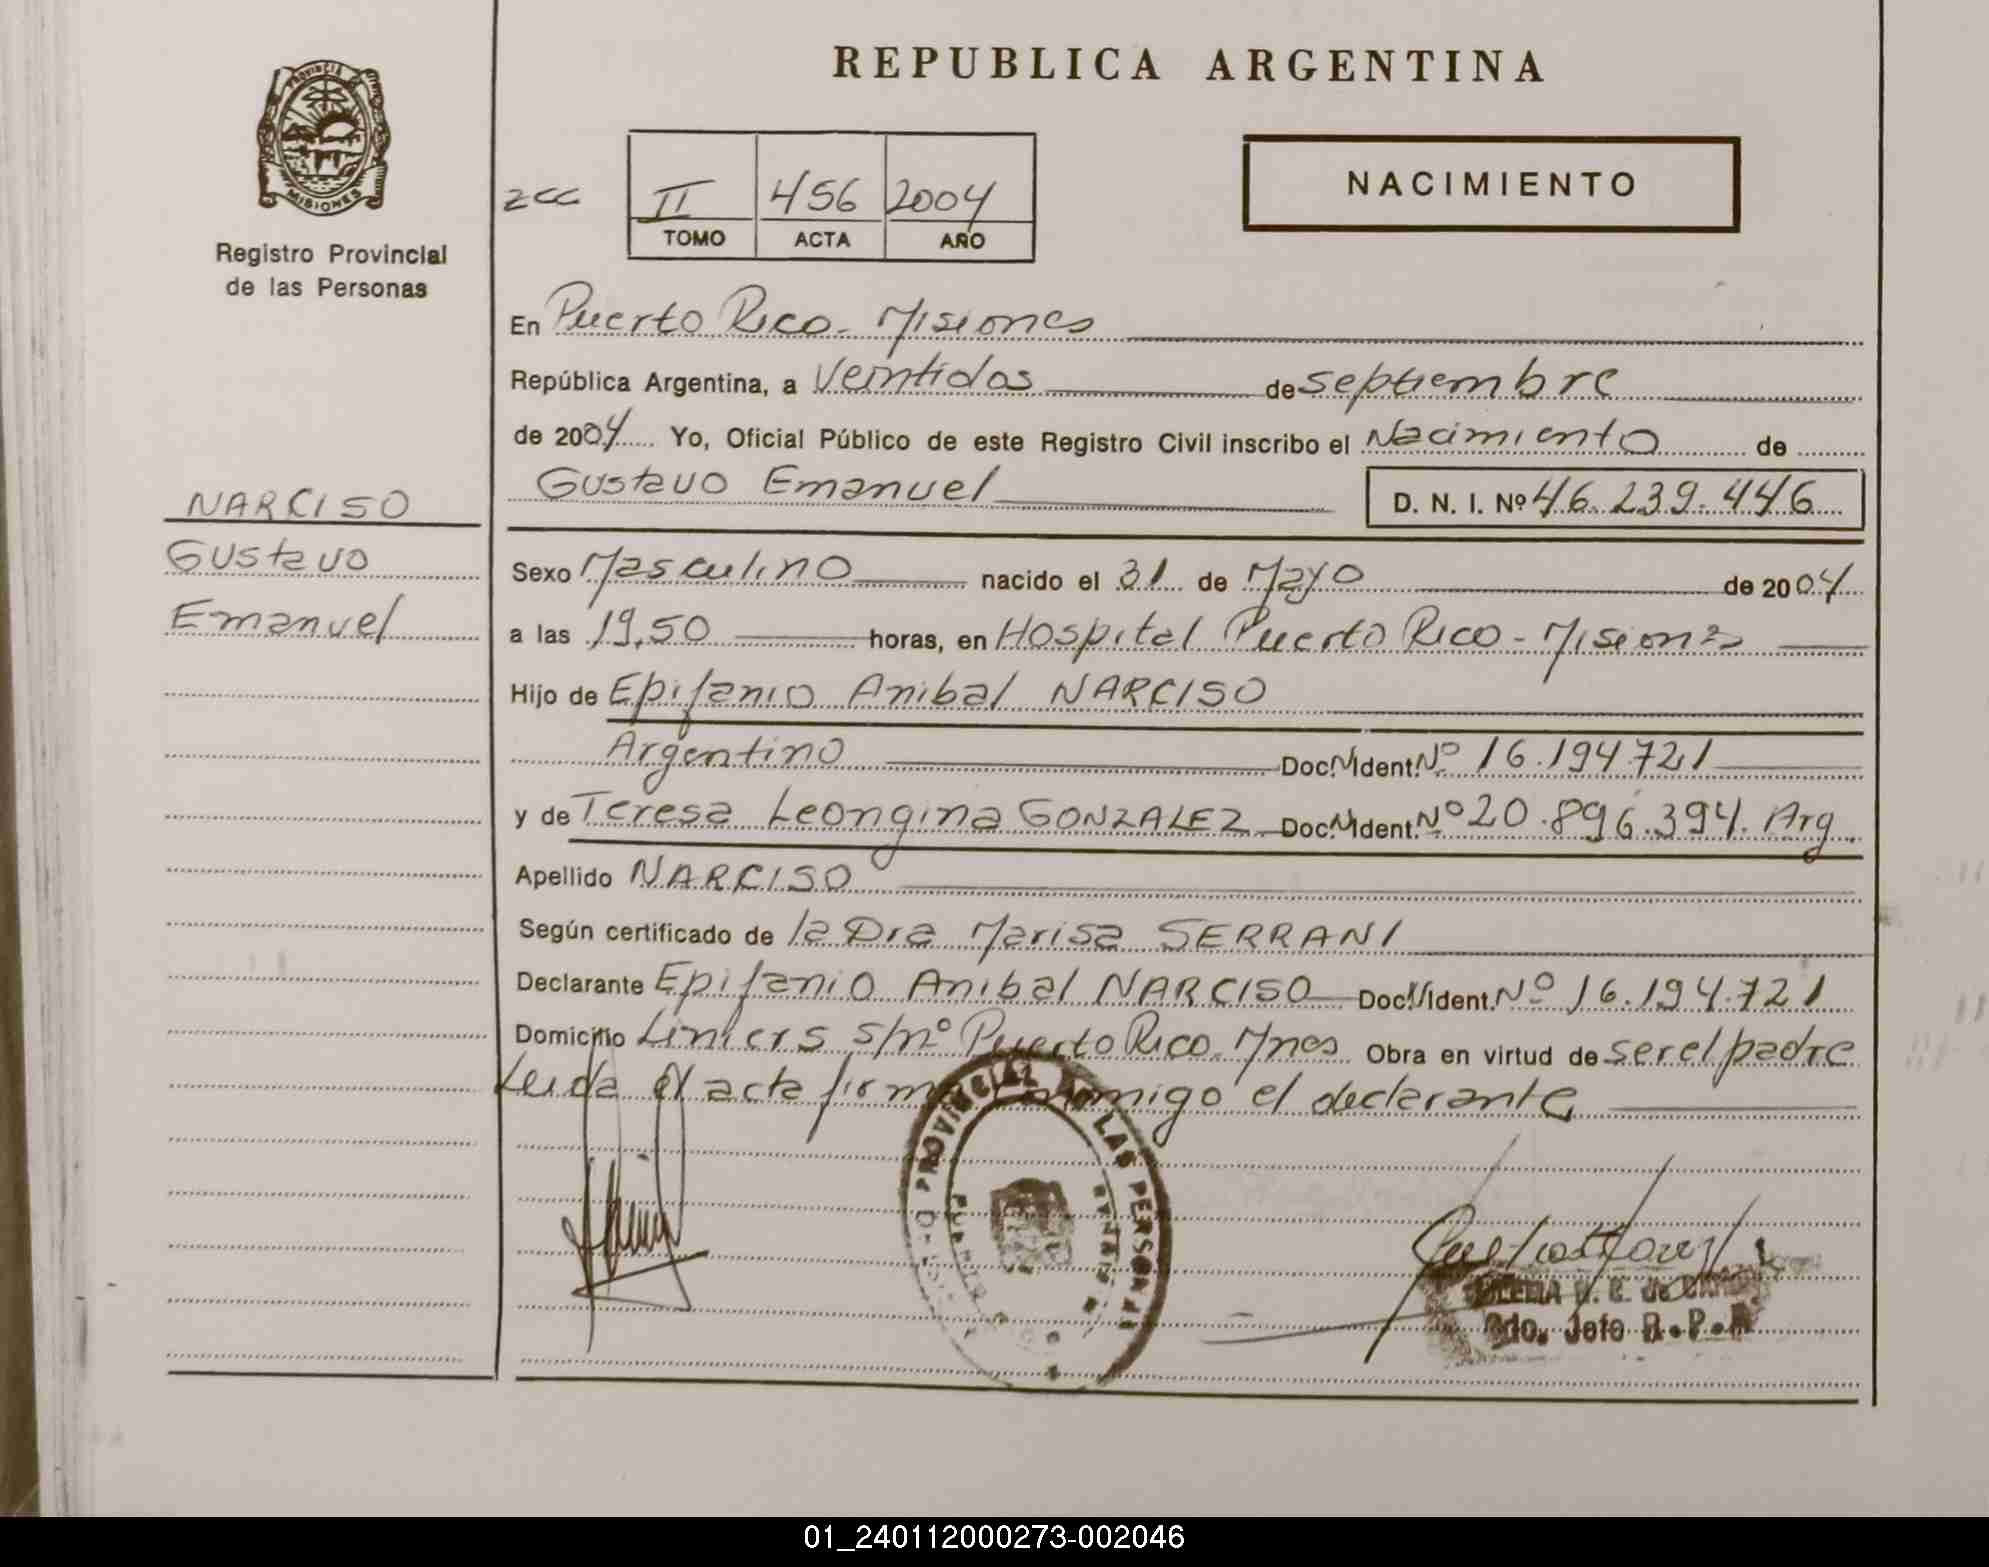 REPUBLICA ARGENTINA
PROVINCIA DE
MISIONES
Registro Provincial
de las Personas
zcc
II 456 2004
TOMO ACTA AÑO
NACIMIENTO
En Puerto Rico - Misiones
República Argentina, a Veintidos de septiembre
de 2004 Yo, Oficial Público de este Registro Civil inscribo el Nacimiento de
Gustavo Emanuel D. N. I. Nº 46.239.446
NARCISO
Gustavo
Emanuel
Sexo Masculino nacido el 31 de Mayo de 2004
a las 19,50 horas, en Hospital Puerto Rico - Misiones
Hijo de Epifanio Anibal NARCISO
Argentino Doc. Ident. Nº 16.194.721
y de Teresa Leongina GONZALEZ Doc. Ident. Nº 20.896.394. Arg.
Apellido NARCISO
Según certificado de la Dra Marisa SERRANI
Declarante Epifanio Anibal NARCISO Doc. Ident. Nº 16.194.721
Domicilio Liniers s/nº Puerto Rico. Mnes Obra en virtud de ser el padre
Leida el acta firma conmigo el declarante
PROVINCIAL DE LAS PERSONAS
PUERTO RICO
2do. Jefe R.P.P.
01_240112000273-002046